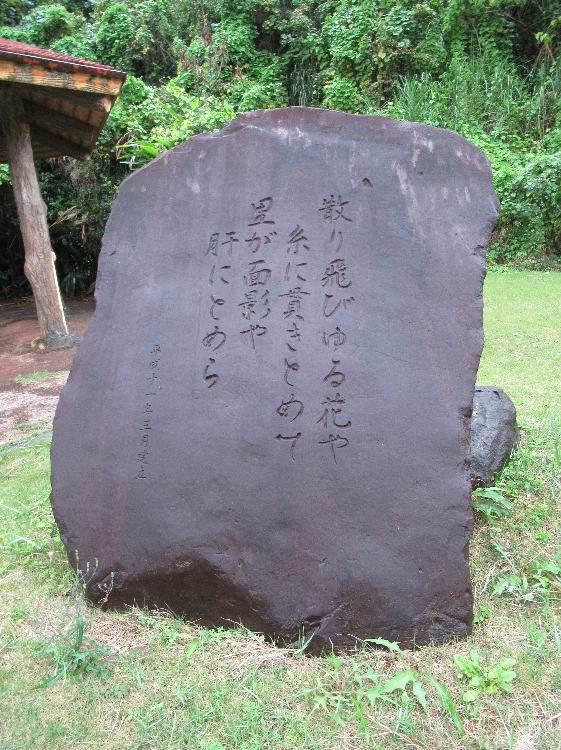 散り飛びゆる花や
糸に貫きとめて
里が面影や
肝にとめら
平成十一年三月建立